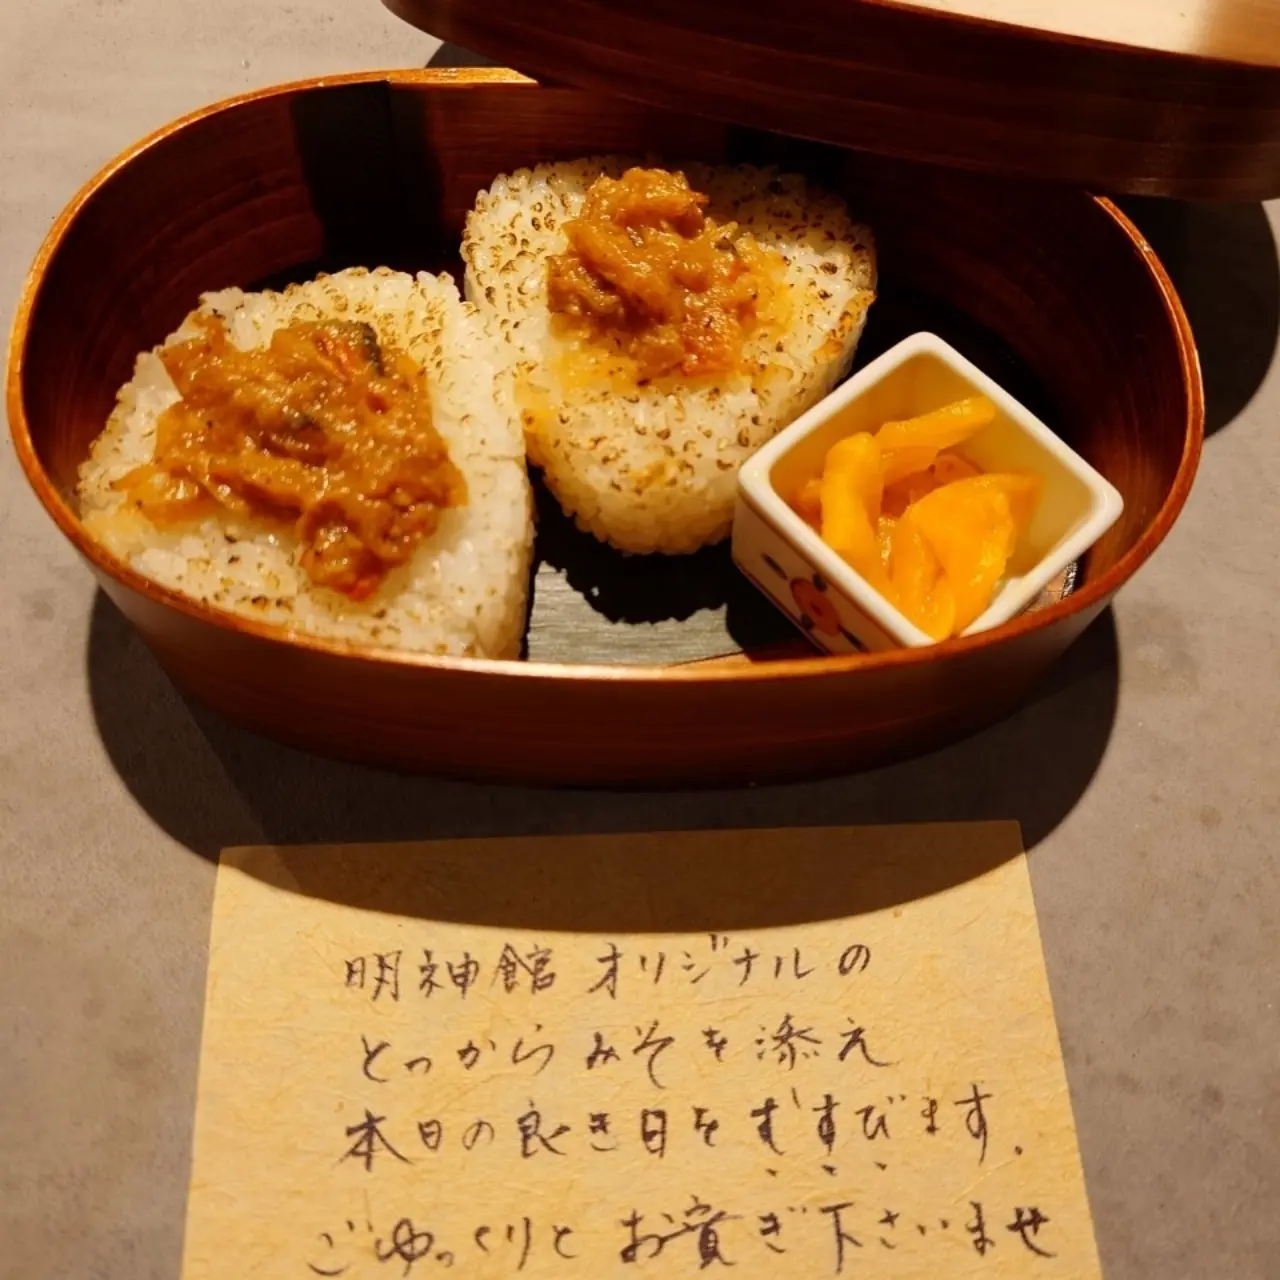 明神館 オリジナルの
とっからみそを添え
本日の良き日をむすびます.
ごゆっくりとお寛ぎ下さいませ